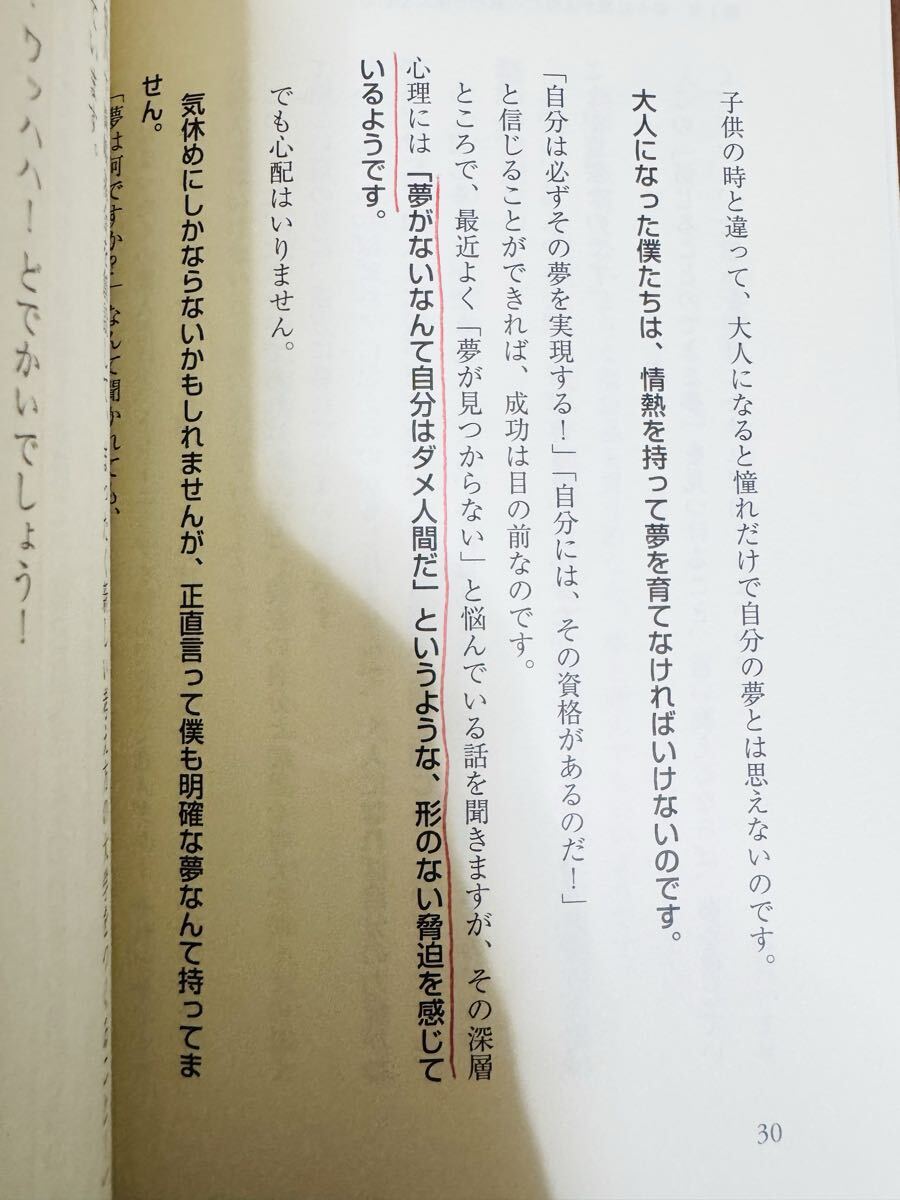 子供の時と違って、大人になると憧れだけで自分の夢とは思えないのです。
大人になった僕たちは、情熱を持って夢を育てなければいけないのです。
「自分は必ずその夢を実現する！」「自分には、その資格があるのだ！」
と信じることができれば、成功は目の前なのです。
ところで、最近よく「夢が見つからない」と悩んでいる話を聞きますが、その深層
心理には「夢がないなんて自分はダメ人間だ」というような、形のない脅迫を感じて
いるようです。
でも心配はいりません。
気休めにしかならないかもしれませんが、正直言って僕も明確な夢なんて持ってま
せん。
「夢は何ですか？」なんて聞かれても、
30
ワハハ！どでかいでしょう！